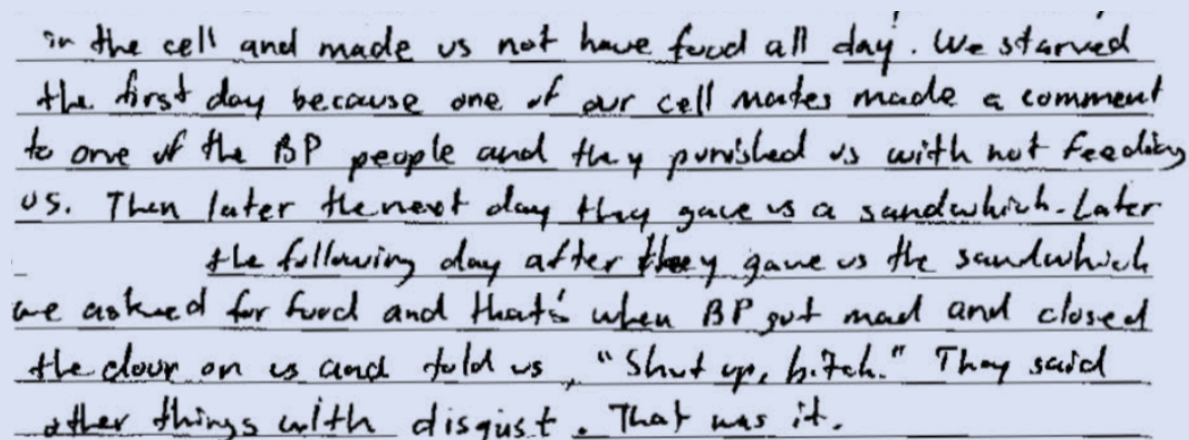 in the cell and made us not have food all day. We starved
the first day because one of our cell mates made a comment
to one of the BP people and they punished us with not feeding
us. Then later the next day they gave us a sandwhich. Later
the following day after they gave us the sandwhich
we asked for food and that's when BP got mad and closed
the door on us and told us, "Shut up, bitch." They said
other things with disgust. That was it.